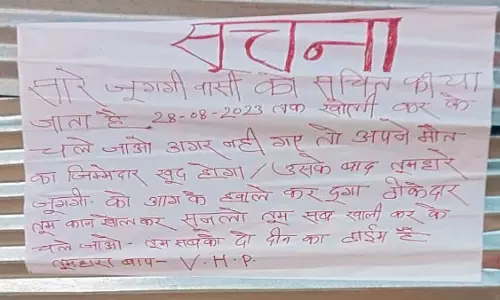 सुचना
सारे जूगगी वासी को सुचित कीया
जाता है 28-08-2023 तक खाली कर के
चले जाओ अगर नही गए तो अपने मौत
का जिम्मेदार खूद होगा / उसके बाद तूमहारे
जूगगी. को आग के हवाले कर दुगा ठेकेदार
तूम कान खोलकर सूनला तूम सब खाली कर के
चले जाओ- तूम सबको दो दीन का टाईम है
तूमहारा बाप- V.H.P.